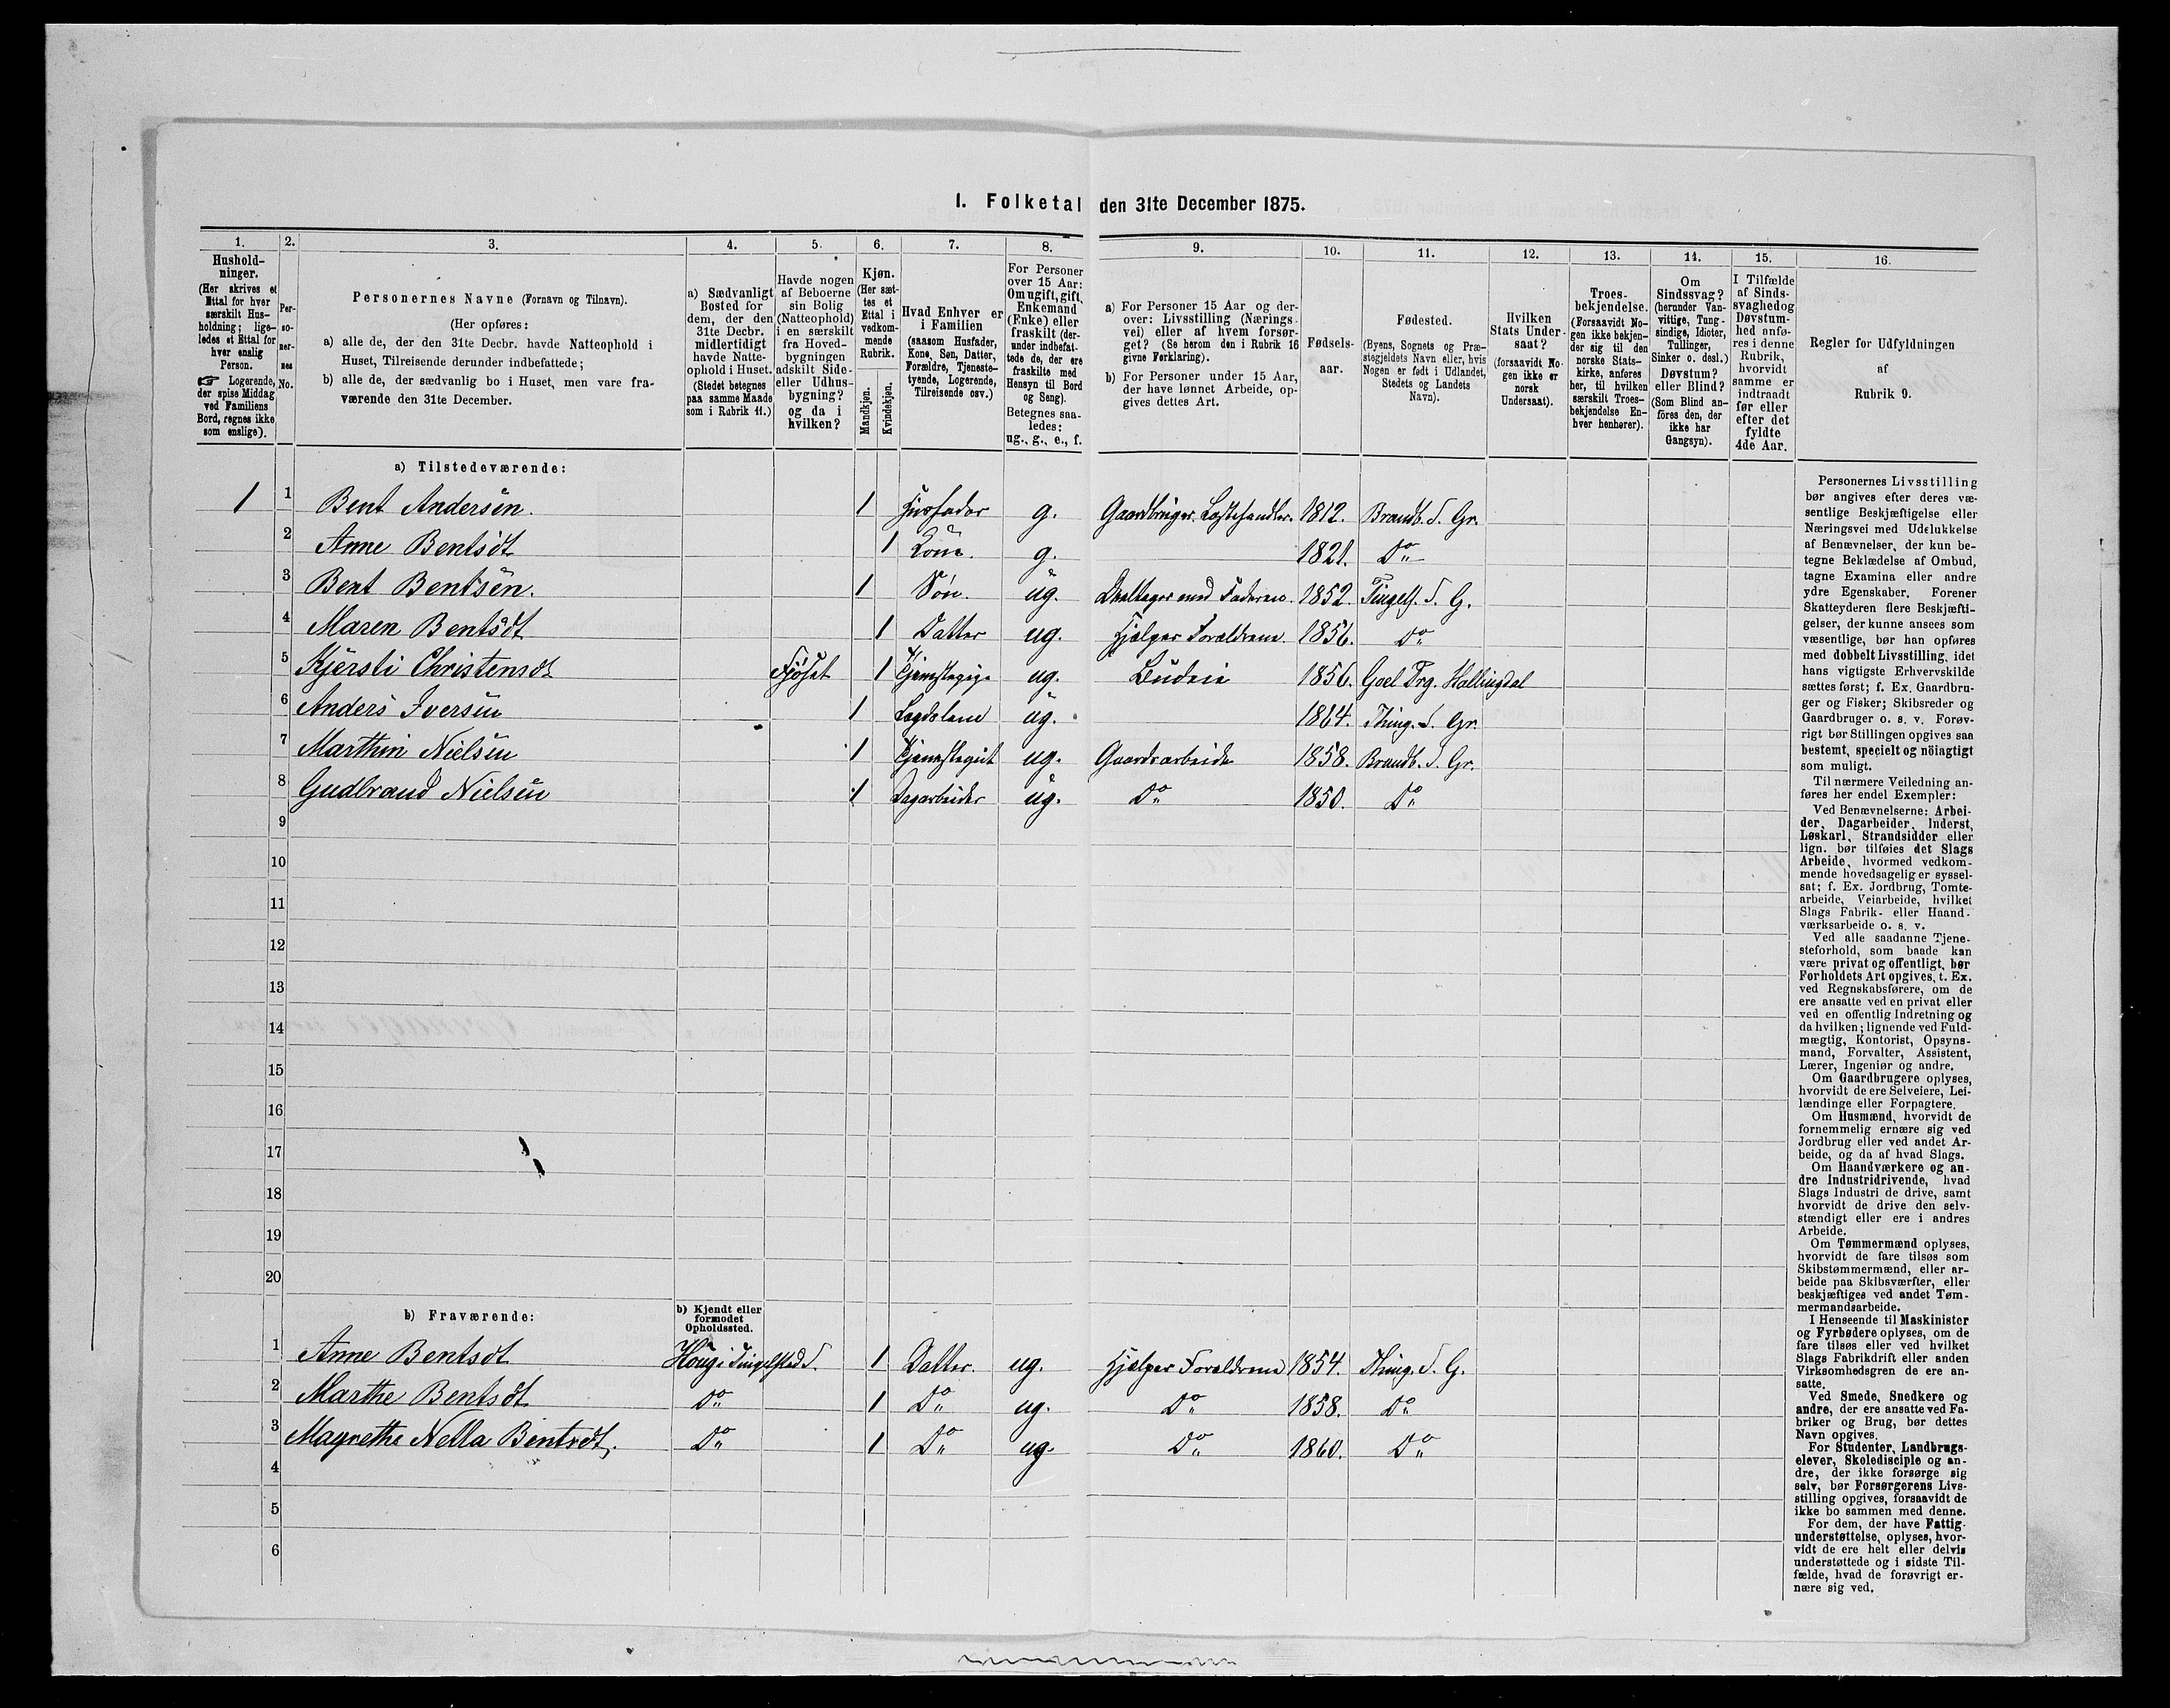 I. Folketal den 31te December 1875.
1. 2. 3. 4. 5. 6. 7. 8. 9. 10. 11. 12. 13. 14. 15. 16.
Hushold-
ninger.
(Her skrives et
Ettal for hver
særskilt Hus-
holdning; lige-
ledes et Ettal for
hver enslig
Person.
☞ Logerende,
der spise Middag
ved Familiens
Bord, regnes ikke
som enslige).
Per-
so-
ner-
nes
No.
Personernes Navne (Fornavn og Tilnavn).
(Her opføres:
a) alle de, der den 31te Decbr. havde Natteophold i
Huset, Tilreisende derunder indbefattede;
b) alle de, der sædvanlig bo i Huset, men vare fra-
værende den 31te December.
a) Sædvanligt
Bosted for
dem, der den
31te Decbr.
midlertidigt
havde Natte-
ophold i Huset.
(Stedet betegnes
paa samme Maade
som i Rubrik 11.)
Havde nogen
af Beboerne
sin Bolig
(Natteophold)
i en særskilt
fra Hoved-
bygningen
adskilt Side-
eller Udhus-
bygning?
og da i
hvilken?
Kjøn.
(Her sæt-
tes et
Ettal i
vedkom-
mende
Rubrik.
Mandkjøn.
Kvindekjøn.
Hvad Enhver er
i Familien
(saasom Husfader,
Kone, Søn, Datter,
Forældre, Tjeneste-
tyende, Logerende,
Tilreisende osv.)
For Personer
over 15 Aar:
Om ugift, gift,
Enkemand
(Enke) eller
fraskilt (der-
under indbefat-
tede de, der ere
fraskilte med
Hensyn til Bord
og Seng).
Betegnes saa-
ledes:
ug., g., e., f.
a) For Personer 15 Aar og der-
over: Livsstilling (Nærings-
vei) eller af hvem forsør-
get? (Se herom den i Rubrik 16
givne Forklaring).
b) For Personer under 15 Aar,
der have lønnet Arbeide, op-
gives dettes Art.
Fødsels-
aar.
Fødested.
(Byens, Sognets og Præ-
stegjeldets Navn eller, hvis
Nogen er født i Udlandet,
Stedets og Landets
Navn).
Hvilken
Stats Under-
saat?
(forsaavidt No-
gen ikke er
norsk
Undersaat).
Troes-
bekjendelse.
(Forsaavidt No-
gen ikke bekjen-
der sig til den
norske Stats-
kirke, anføres
her, til hvilken
særskilt Troes-
bekjendelse En-
hver henhører).
Om
Sindssvag?
(herunder Van-
vittige, Tung-
sindige, Idioter,
Tullinger,
Sinker o. desl.)
Døvstum?
eller Blind?
(Som Blind an-
føres den, der
ikke har
Gangsyn).
I Tilfælde
af Sinds-
svaghed og
Døvstum-
hed anfø-
res i denne
Rubrik,
hvorvidt
samme er
indtraadt
før eller
efter det
fyldte
4de Aar.
Regler for Udfyldningen
af
Rubrik 9.
a) Tilstedeværende:
1 1 Bent Andersen. 1 Husfader g. Gaardbruger, Hestehandler. 1812. Brandb. S. Gr.
2 Anne Bentsdt 1 Kone. g. 1821. Do
3 Bent Bentsen. 1 Søn. ug. Deeltager med Faderen. 1852. Tingels. S. G.
4 Maren Bentsdt 1 Datter ug. Hjelper Forældrene. 1856. Do
5 Kjersti Christensdt Fjøset 1 Tjenestepige ug. Budeie 1856. Goel Prg. Hallingdal
6 Anders Iversen 1 Lægdelem ug. 1864. Thing. S. Gr.
7 Marthin Nielsen 1 Tjenestegut ug. Gaardsarbeide 1858. Brandb. S. Gr.
8 Gudbrand Nielsen 1 Dagarbeider ug. Do 1850. Do
9
10
11
12
13
14
15
16
17
18
19
20
b) Fraværende:
b) Kjendt eller
formodet
Opholdssted.
1 Anne Bentsdt Houg i Tingelstad S. 1 Datter. ug. Hjelper Forældrene 1854. Thing. S. G.
2 Marthe Bentsdt Do 1 Do ug. Do 1858. Do
3 Magrethe Nella Bentsdt. Do 1 Do ug. Do 1860. Do
4
5
6
Personernes Livsstilling
bør angives efter deres væ-
sentlige Beskjæftigelse eller
Næringsvei med Udelukkelse
af Benævnelser, der kun be-
tegne Beklædelse af Ombud,
tagne Examina eller andre
ydre Egenskaber. Forener
Skatteyderen flere Beskjæfti-
gelser, der kunne ansees som
væsentlige, bør han opføres
med dobbelt Livsstilling, idet
hans vigtigste Erhvervskilde
sættes først; f. Ex. Gaardbru-
ger og Fisker; Skibsreder og
Gaardbruger o. s. v. Forøv-
rigt bør Stillingen opgives saa
bestemt, specielt og nöiagtigt
som muligt.
Til nærmere Veiledning an-
føres her endel Exempler:
Ved Benævnelserne: Arbei-
der, Dagarbeider, Inderst,
Løskarl, Strandsidder eller
lign. bør tilføies det Slags
Arbeide, hvormed vedkom-
mende hovedsagelig er syssel-
sat; f. Ex. Jordbrug, Tomte-
arbeide, Veiarbeide, hvilket
Slags Fabrik- eller Haand-
værksarbeide o. s. v.
Ved alle saadanne Tjene-
steforhold, som baade kan
være privat og offentligt, bør
Forholdets Art opgives, t. Ex.
ved Regnskabsførere, om de
ere ansatte ved en privat eller
ved en offentlig Indretning og
da hvilken; lignende ved Fuld-
mægtig, Kontorist, Opsyns-
mand, Forvalter, Assistent,
Lærer, Ingeniør og andre.
Om Gaardbrugere oplyses,
hvorvidt de ere Selveiere, Lei-
lændinge eller Forpagtere.
Om Husmænd, hvorvidt de
fornemmelig ernære sig ved
Jordbrug eller ved andet Ar-
beide, og da af hvad Slags.
Om Haandværkere og an-
dre Industridrivende, hvad
Slags Industri de drive, samt
hvorvidt de drive den selv-
stændigt eller ere i andres
Arbeide.
Om Tømmermænd oplyses,
hvorvidt de fare tilsøs som
Skibstømmermænd, eller ar-
beide paa Skibsværfter, eller
beskjæftiges ved andet Tøm-
mermandsarbeide.
I Henseende til Maskinister
og Fyrbødere oplyses, om de
fare tilsøs eller ved hvilket
Slags Fabrikdrift eller anden
Virksomhedsgren de ere an-
satte.
Ved Smede, Snedkere og
andre, der ere ansatte ved Fa-
briker og Brug, bør dettes
Navn opgives.
For Studenter, Landbrugs-
elever, Skoledisciple og an-
dre, der ikke forsørge sig
selv, bør Forsørgerens Livs-
stilling opgives, forsaavidt de
ikke bo sammen med denne.
For dem, der have Fattig-
understøttelse, oplyses, hvor-
vidt de ere helt eller delvis
understøttede og i sidste Til-
fælde, hvad de forøvrigt er-
nære sig ved.